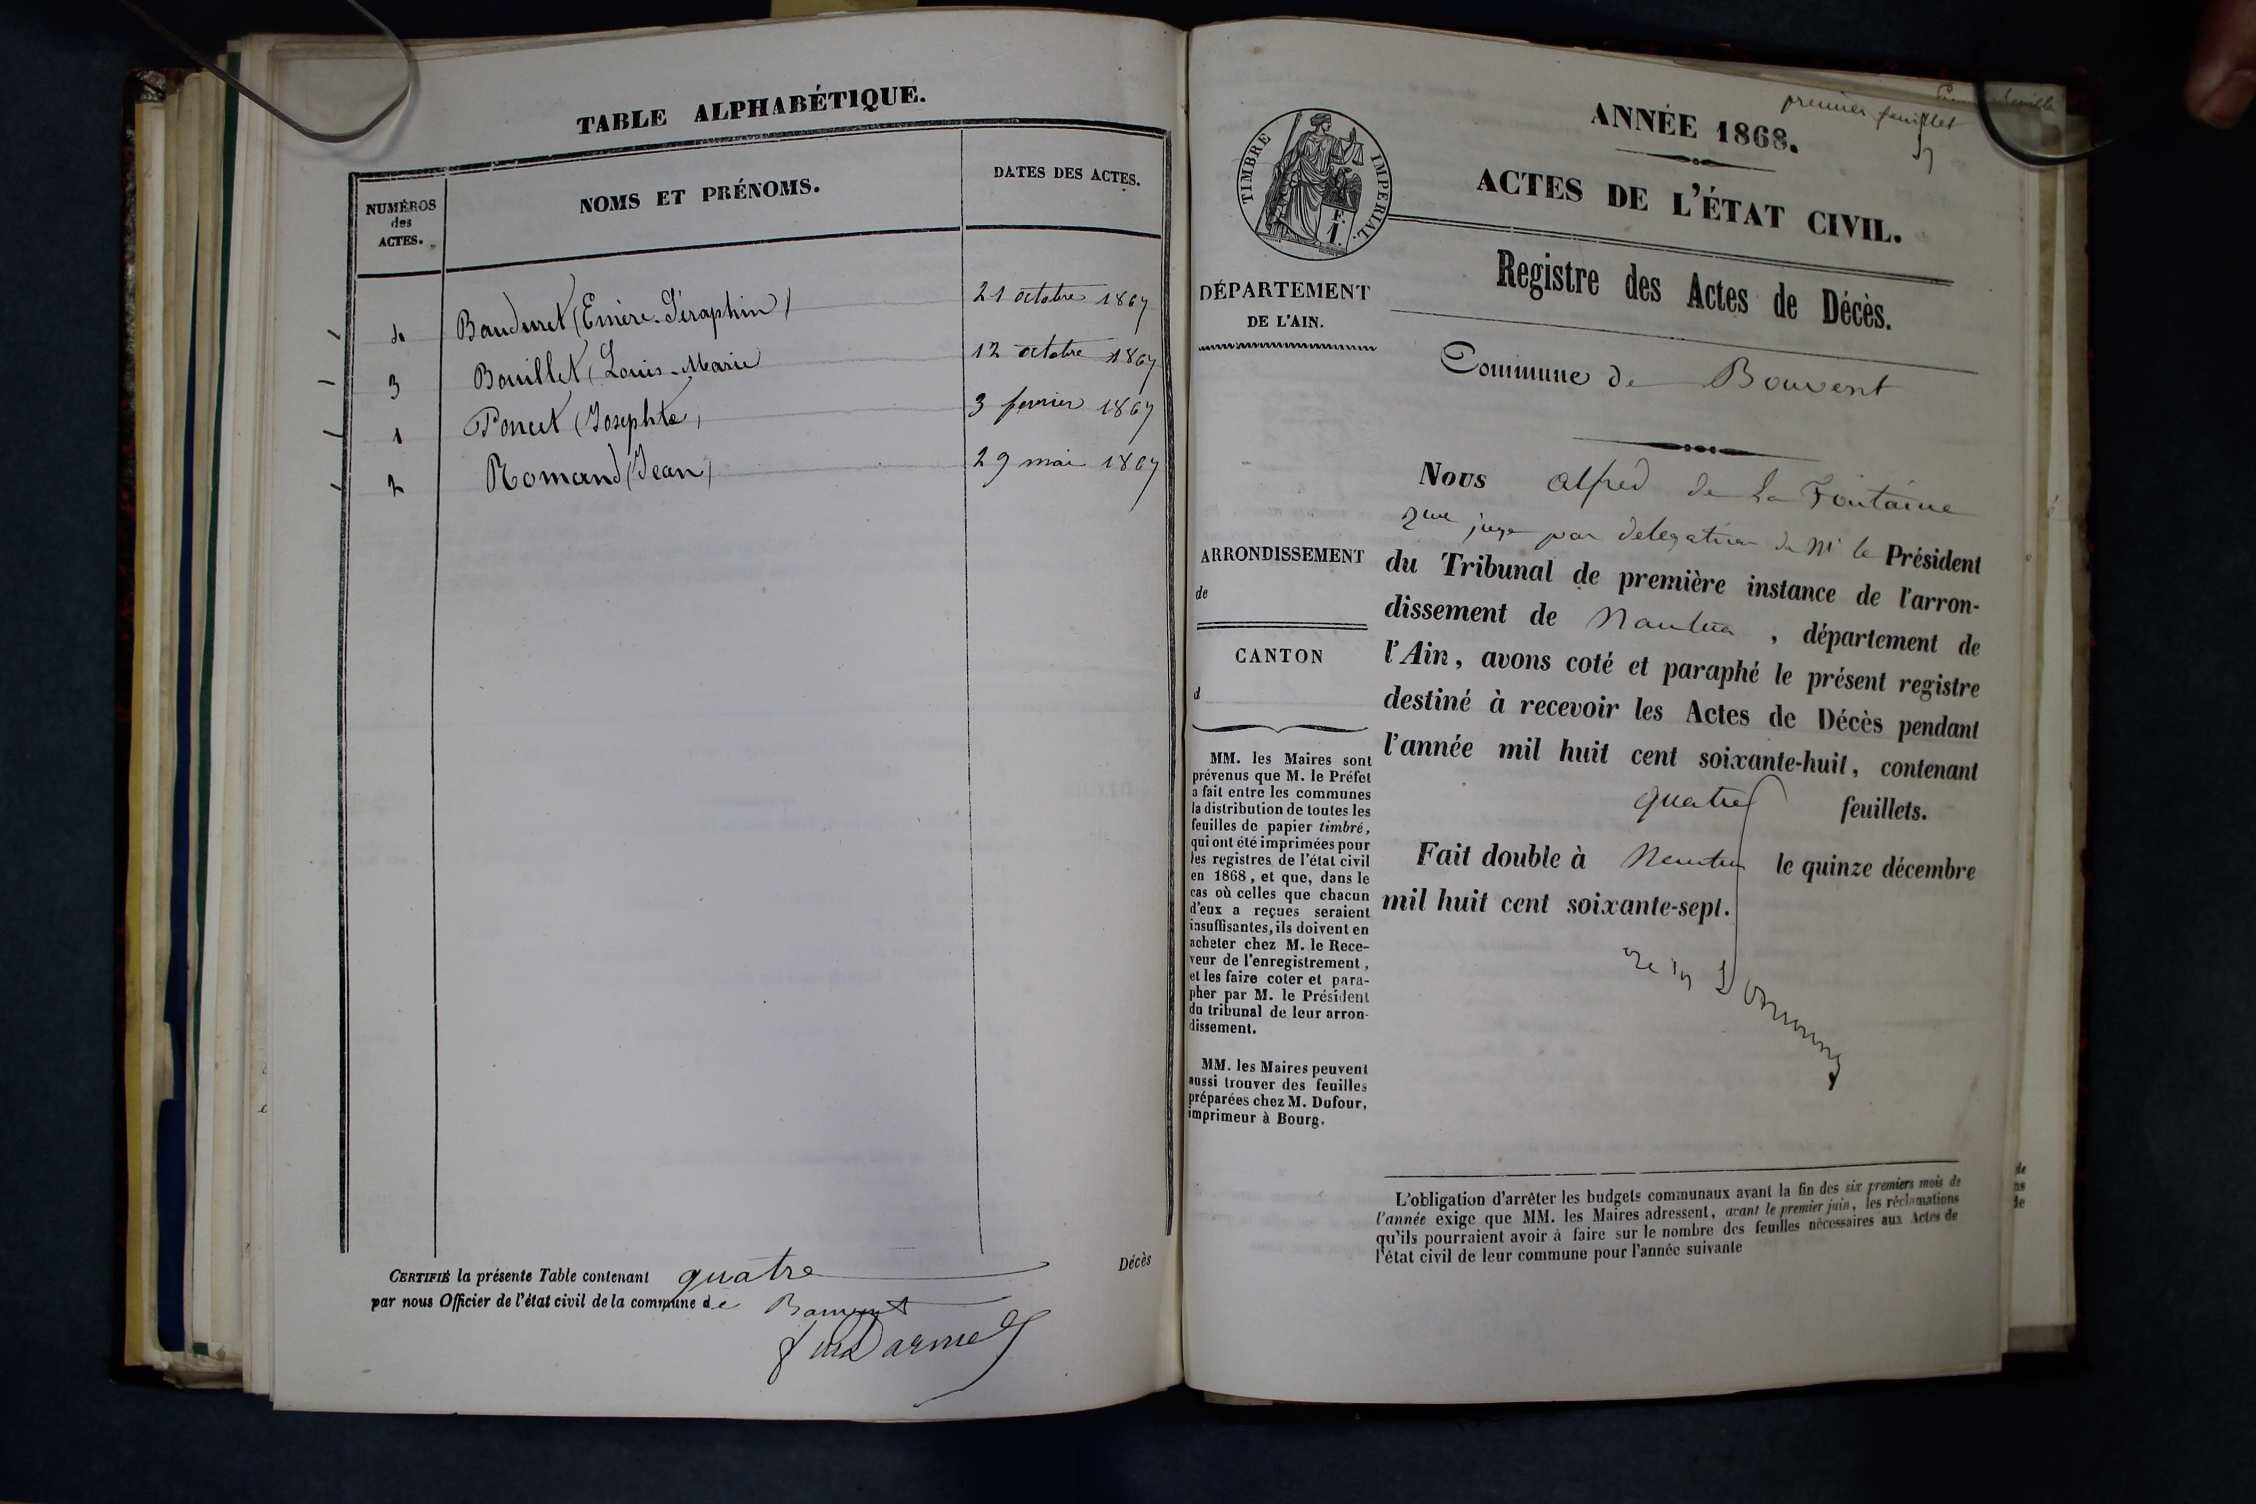 TABLE ALPHABÉTIQUE.
NUMÉROS
des
ACTES.
NOMS ET PRÉNOMS.
DATES DES ACTES.
4 Bauduret (Emère-Séraphin) 21 octobre 1867
3 Bouillet (Louis-Marie 12 octobre 1867
1 Poncet (Josephte) 3 fevrier 1867
2 Romand (Jean) 29 mai 1867
CERTIFIÉ la présente Table contenant quatre Décès
par nous Officier de l'état civil de la commune de Bouvent
premier feuillet
TIMBRE IMPÉRIAL.
F.
1.
ANNÉE 1868.
ACTES DE L'ÉTAT CIVIL.
Registre des Actes de Décès.
DÉPARTEMENT
DE L'AIN.
Commune de Bouvent
ARRONDISSEMENT
de
CANTON
d
MM. les Maires sont
prévenus que M. le Préfet
a fait entre les communes
la distribution de toutes les
feuilles de papier timbré,
qui ont été imprimées pour
les registres de l'état civil
en 1868, et que, dans le
cas où celles que chacun
d'eux a reçues seraient
insuffisantes, ils doivent en
acheter chez M. le Rece-
veur de l'enregistrement,
et les faire coter et para-
pher par M. le Président
du tribunal de leur arron-
dissement.
MM. les Maires peuvent
aussi trouver des feuilles
préparées chez M. Dufour,
imprimeur à Bourg.
Nous Alfred de La Fontaine
juge par delegation de Mr le Président
du Tribunal de première instance de l'arron-
dissement de Nantua, département de
l'Ain, avons coté et paraphé le présent registre
destiné à recevoir les Actes de Décès pendant
l'année mil huit cent soixante-huit, contenant
quatre feuillets.
Fait double à Nantua le quinze décembre
mil huit cent soixante-sept.
L'obligation d'arrêter les budgets communaux avant la fin des six premiers mois de
l'année exige que MM. les Maires adressent, avant le premier juin, les réclamations
qu'ils pourraient avoir à faire sur le nombre des feuilles nécessaires aux Actes de
l'état civil de leur commune pour l'année suivante